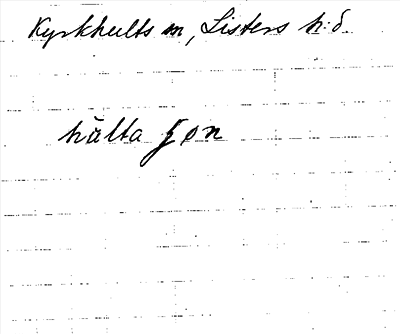 Kyrkhults sn, Listers h:d.
hälta ſøn